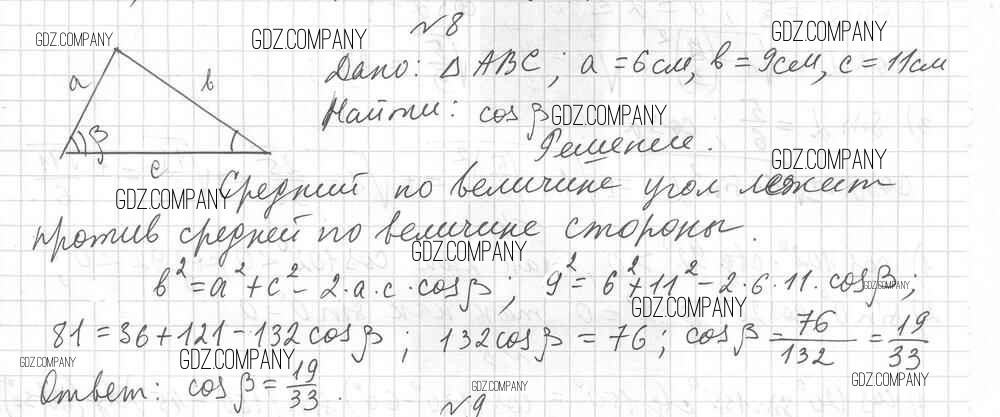 №8
GDZ.COMPANY GDZ.COMPANY GDZ.COMPANY
a b Дано: △ ABC; a = 6см, b = 9см, c = 11см
Найти: cos β GDZ.COMPANY
β Решение.
c GDZ.COMPANY
GDZ.COMPANY Средний по величине угол лежит
против средней по величине стороны.
GDZ.COMPANY
b² = a² + c² - 2·a·c·cos β; 9² = 6² + 11² - 2·6·11·cos β;
GDZ.COMPANY
GDZ.COMPANY
81 = 36 + 121 - 132 cos β; 132 cos β = 76; cos β = 76/132 = 19/33
GDZ.COMPANY GDZ.COMPANY
Ответ: cos β = 19/33.
GDZ.COMPANY GDZ.COMPANY
№9